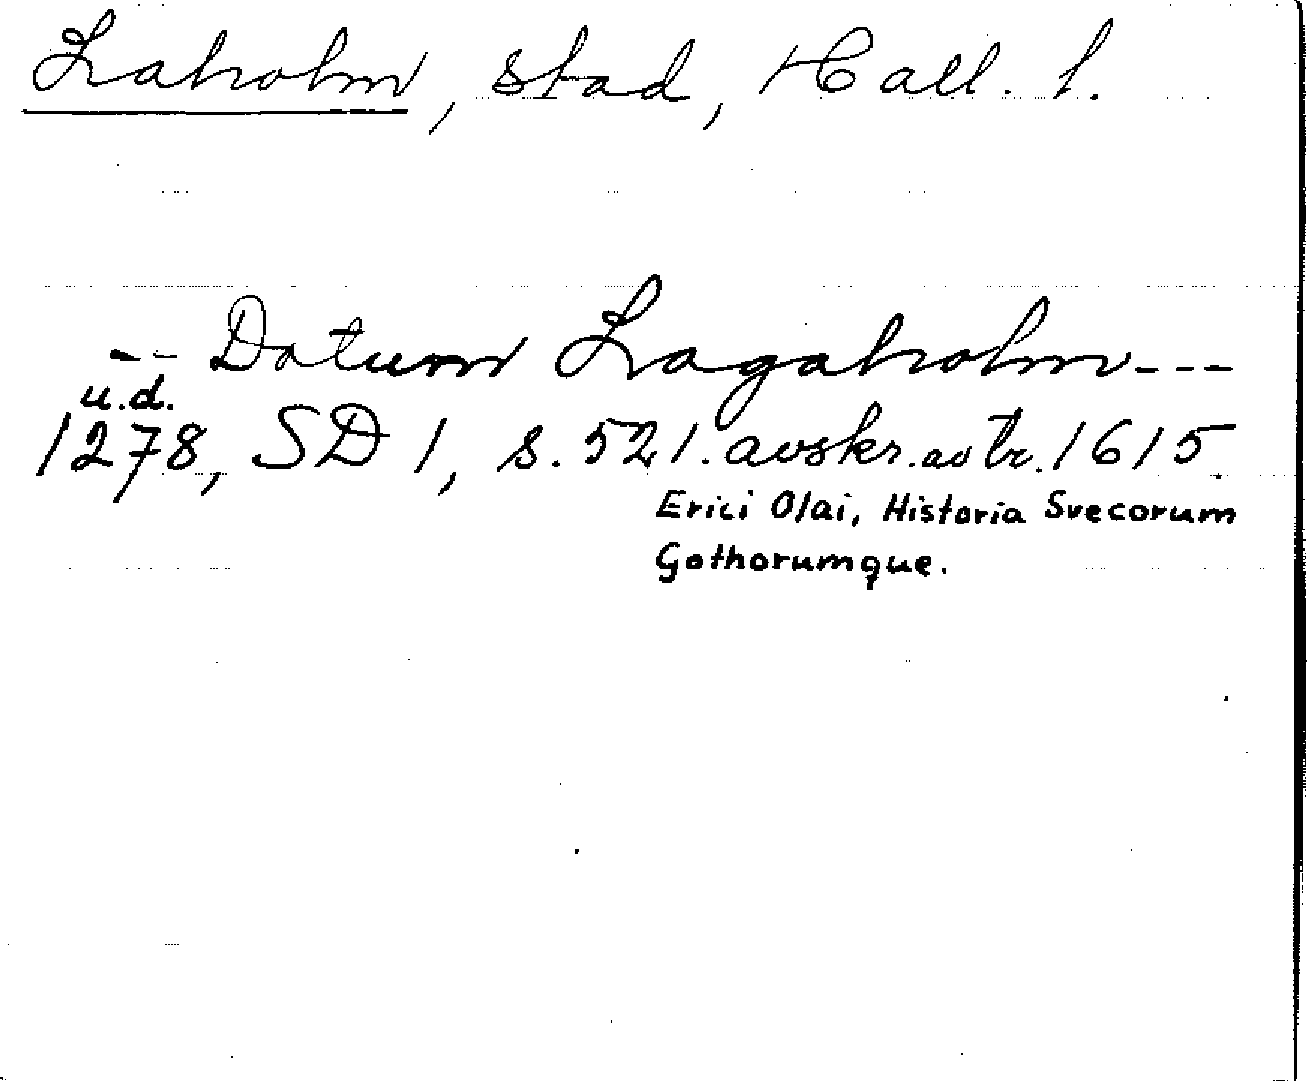 Laholm, stad, Hall. l.
-- Datum Lagaholm ---
u.d.
1278, SD 1, s. 521. avskr. av tr. 1615.
Erici Olai, Historia Svecorum
Gothorumque.